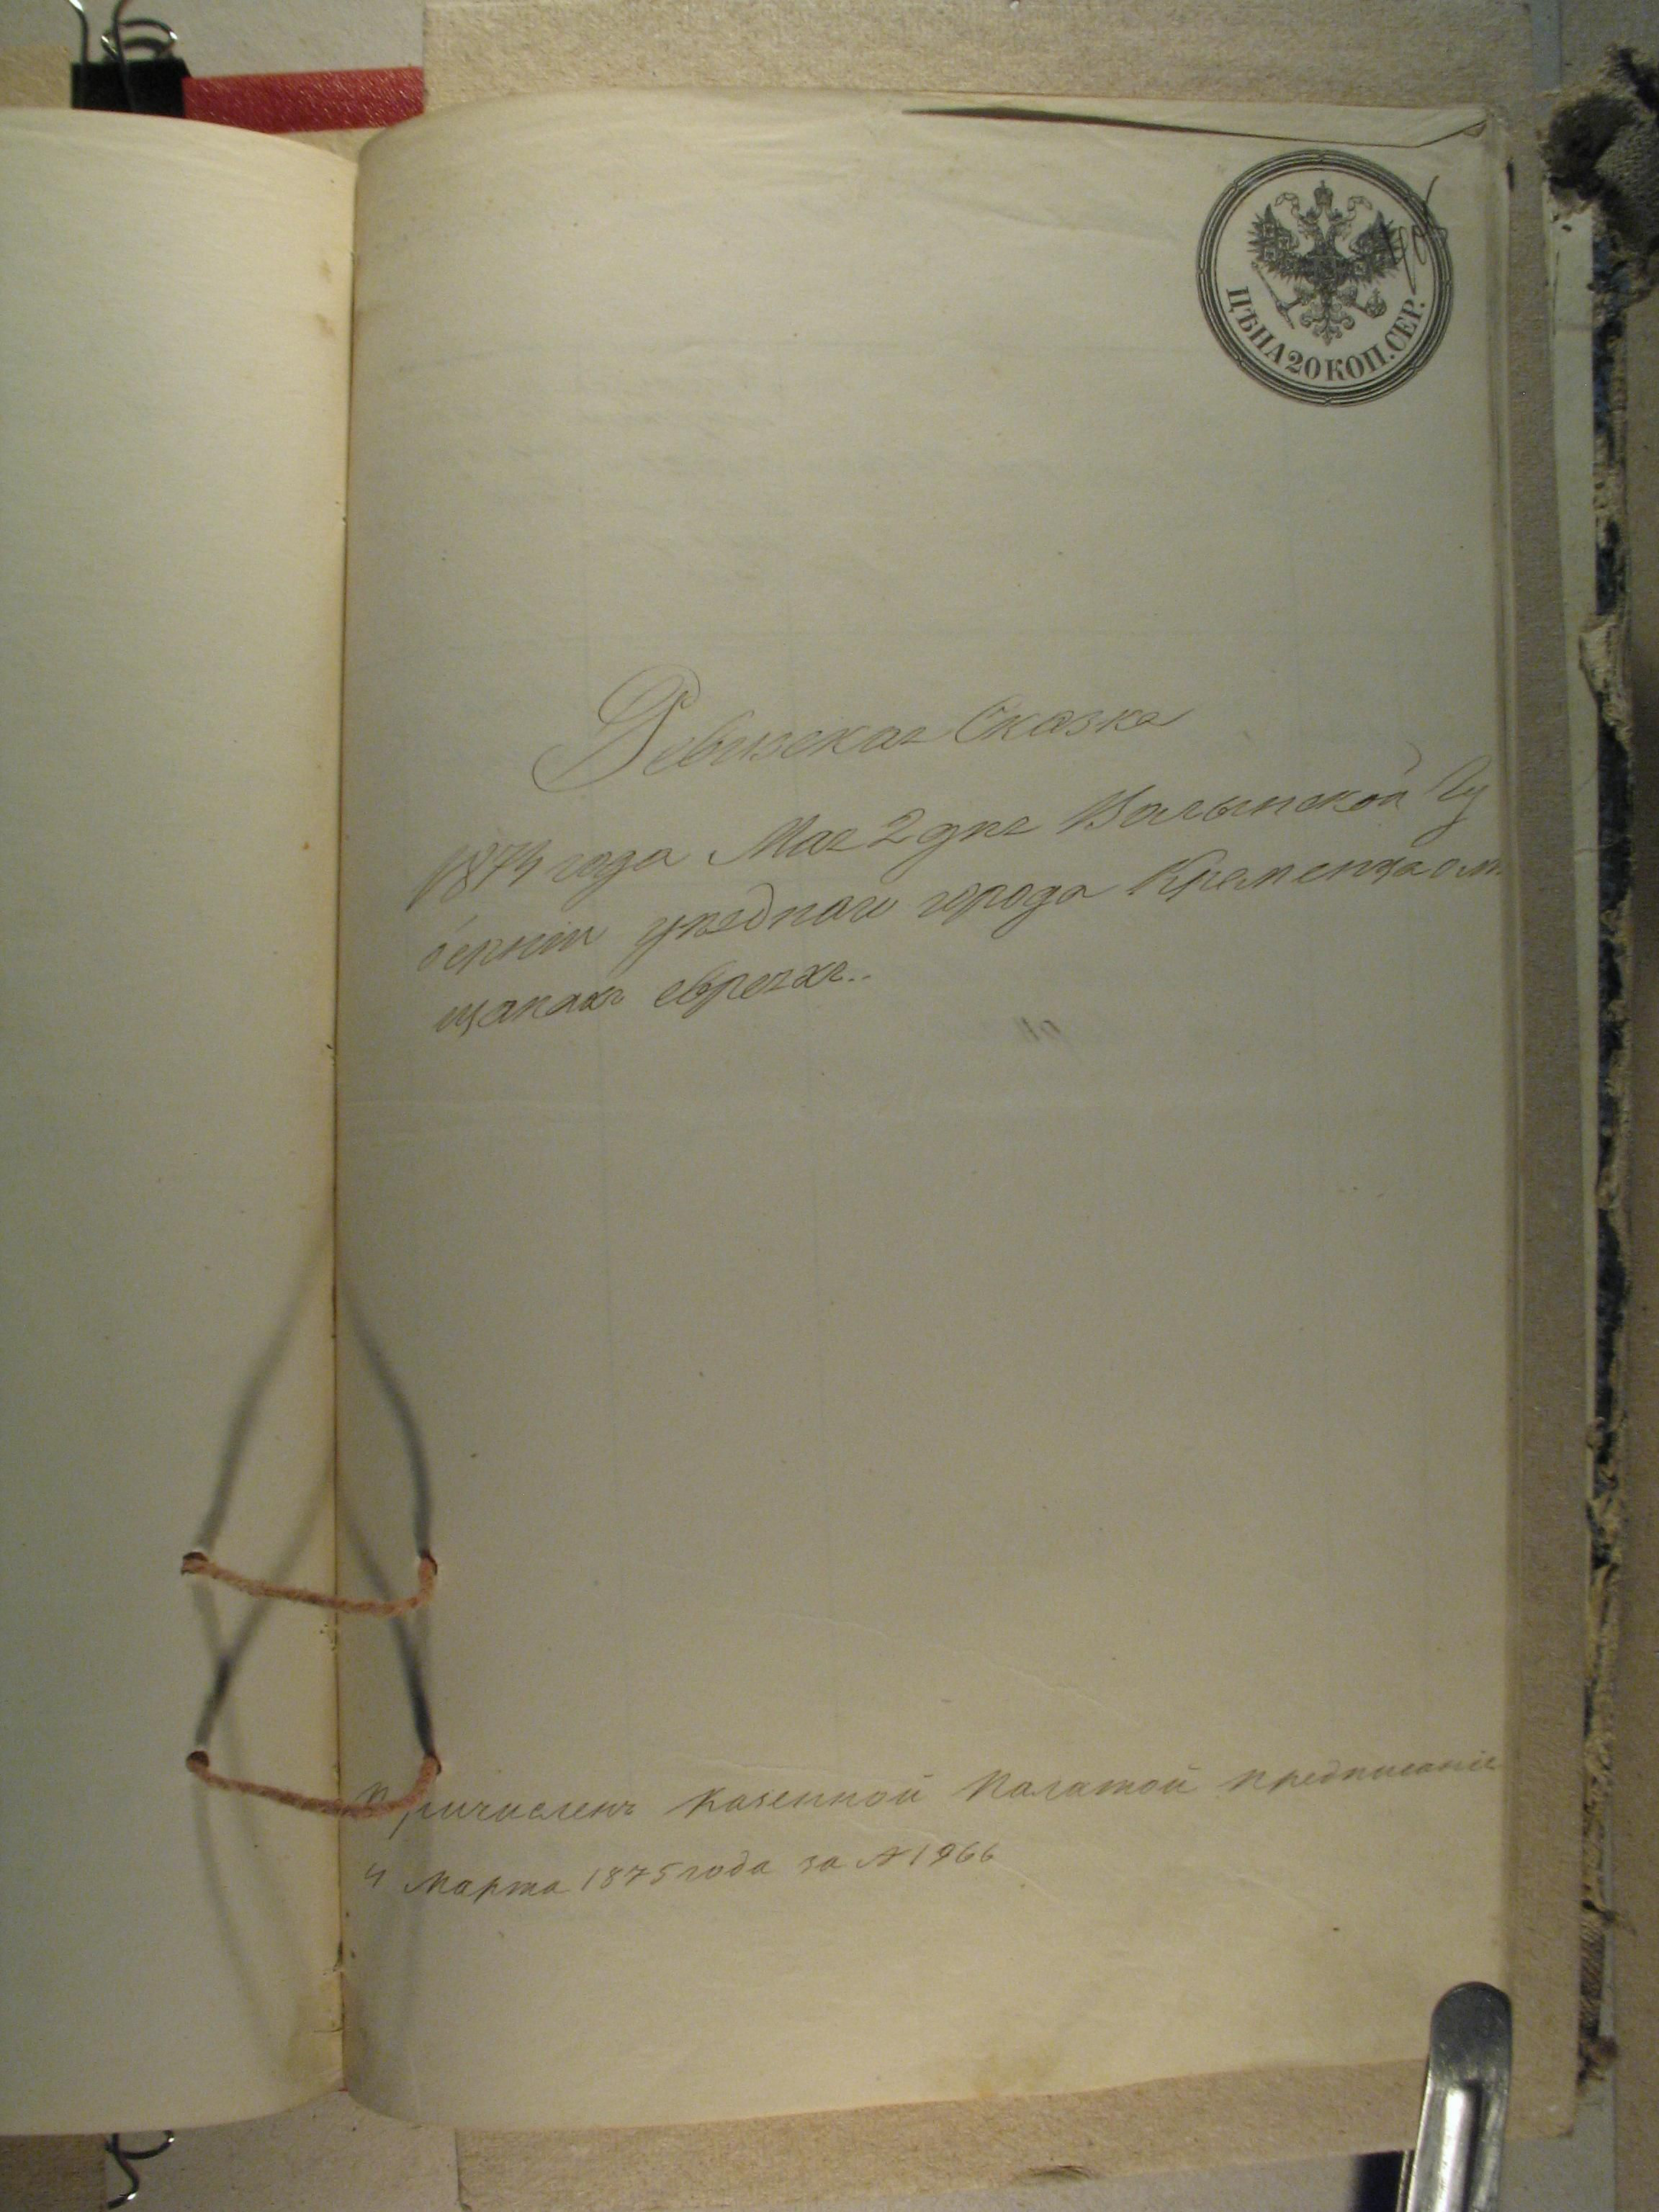 ЦѢНА 20 КОП. СЕР.
Ревизская Сказка
1874 года Мая 2 дня Волынской Гу
берніи уѣзднаго города Кременца о м
щанахъ евреяхъ..
Причисленъ Казенной Палатой предписаніе
4 Марта 1875 года за № 1966